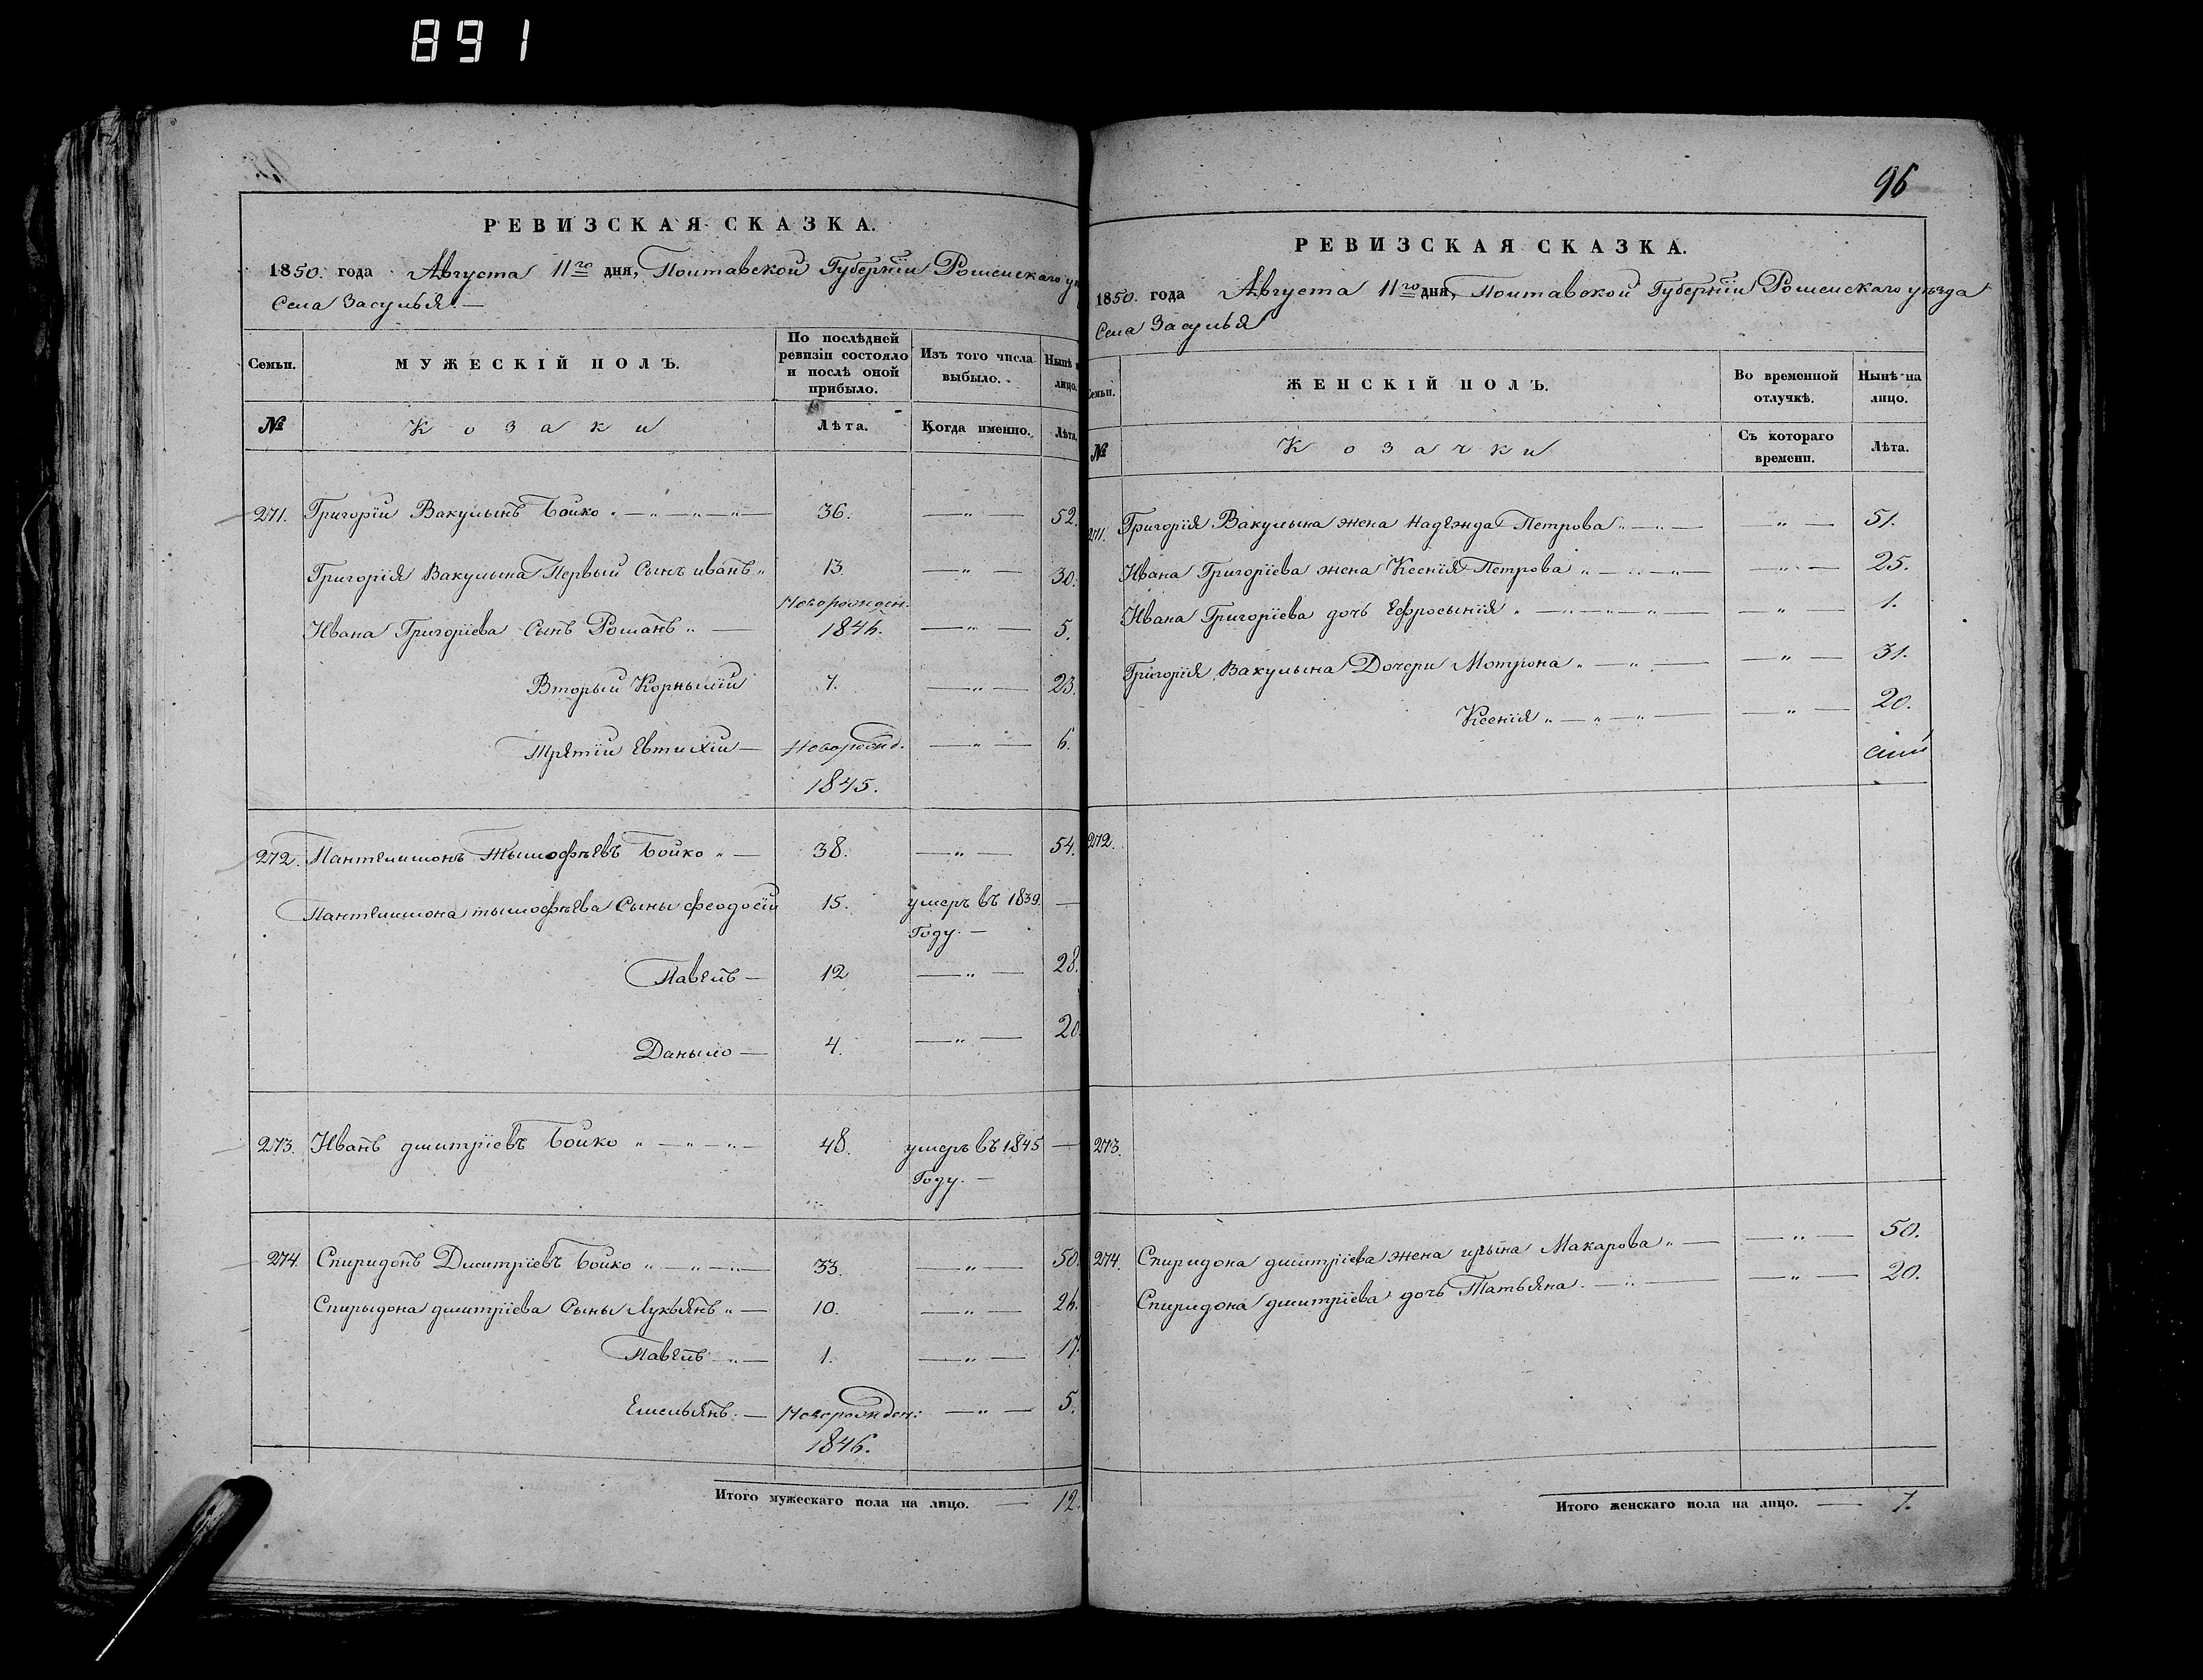 891
РЕВИЗСКАЯ СКАЗКА.
1850. года Августа 11го дня, Полтавской Губерніи Роменскаго
Села Засулья. —
Семьи.
МУЖЕСКІЙ ПОЛЪ.
По послѣдней ревизіи состояло и послѣ оной прибыло.
Изъ того числа выбыло.
Нынѣ
лицо.
№
Козаки
Лѣта.
Когда именно.
Лѣта.
271. Григорій Вакулынъ Бойко 36. — „ — 52.
Григорія Вакулына Первый Сынъ иванъ „ 13. — „ — 30.
Новорожден.
Ивана Григоріева Сынъ Романъ „ — 1846. — „ — 5.
Вторый Корнылій 7. — „ — 23.
Третій Евтихій — Новорожд. — „ — 6.
1845.
272. Пантелимонъ Тымофѣевъ Бойко „ — 38. — „ — 54.
Пантелимона тымофѣева Сыны феодосій 15. умеръ въ 1839. —
Году. —
Павелъ — 12 — „ — 28.
Даныло — 4. — „ — 20
273. Иванъ дмитріевъ Бойко „ — „ — „ — 48. умеръ въ 1845 —
Году. —
274. Спиридонъ Дмитріевъ Бойко „ — „ — „ — 33. — „ — 50.
Спирыдона дмитріева Сыны Лукьянъ „ — 10. — „ — 26.
Павелъ „ — 1. — „ — 17.
Емельянъ. — Новорожден: — „ — 5.
1846.
Итого мужескаго пола на лицо. — 12.
96
РЕВИЗСКАЯ СКАЗКА.
1850. года Августа 11го дня, Полтавской Губерніи Роменскаго уѣзда
Села Засулья
Семьи.
ЖЕНСКІЙ ПОЛЪ.
Во временной отлучкѣ.
Нынѣ на лицо.
№
Козачки
Съ котораго времени.
Лѣта.
271. Григорія Вакулына жена Надежда Петрова „ — „ — „ — 51.
Ивана Григоріева жена Ксенія Петрова „ — „ — „ — 25.
Ивана Григоріева дочь Ефросынія „ — „ — „ — „ — „ — 1.
Григорія Вакулына Дочери Мотрона „ — „ — — „ — 31.
Ксенія „ — „ — „ — — „ — 20.
272.
273.
274. Спиридона дмитріева жена ирына Макарова „ — — „ — 50.
Спиридона дмитріева дочь Татьяна. — „ — — „ — 20.
Итого женскаго пола на лицо. — 7.